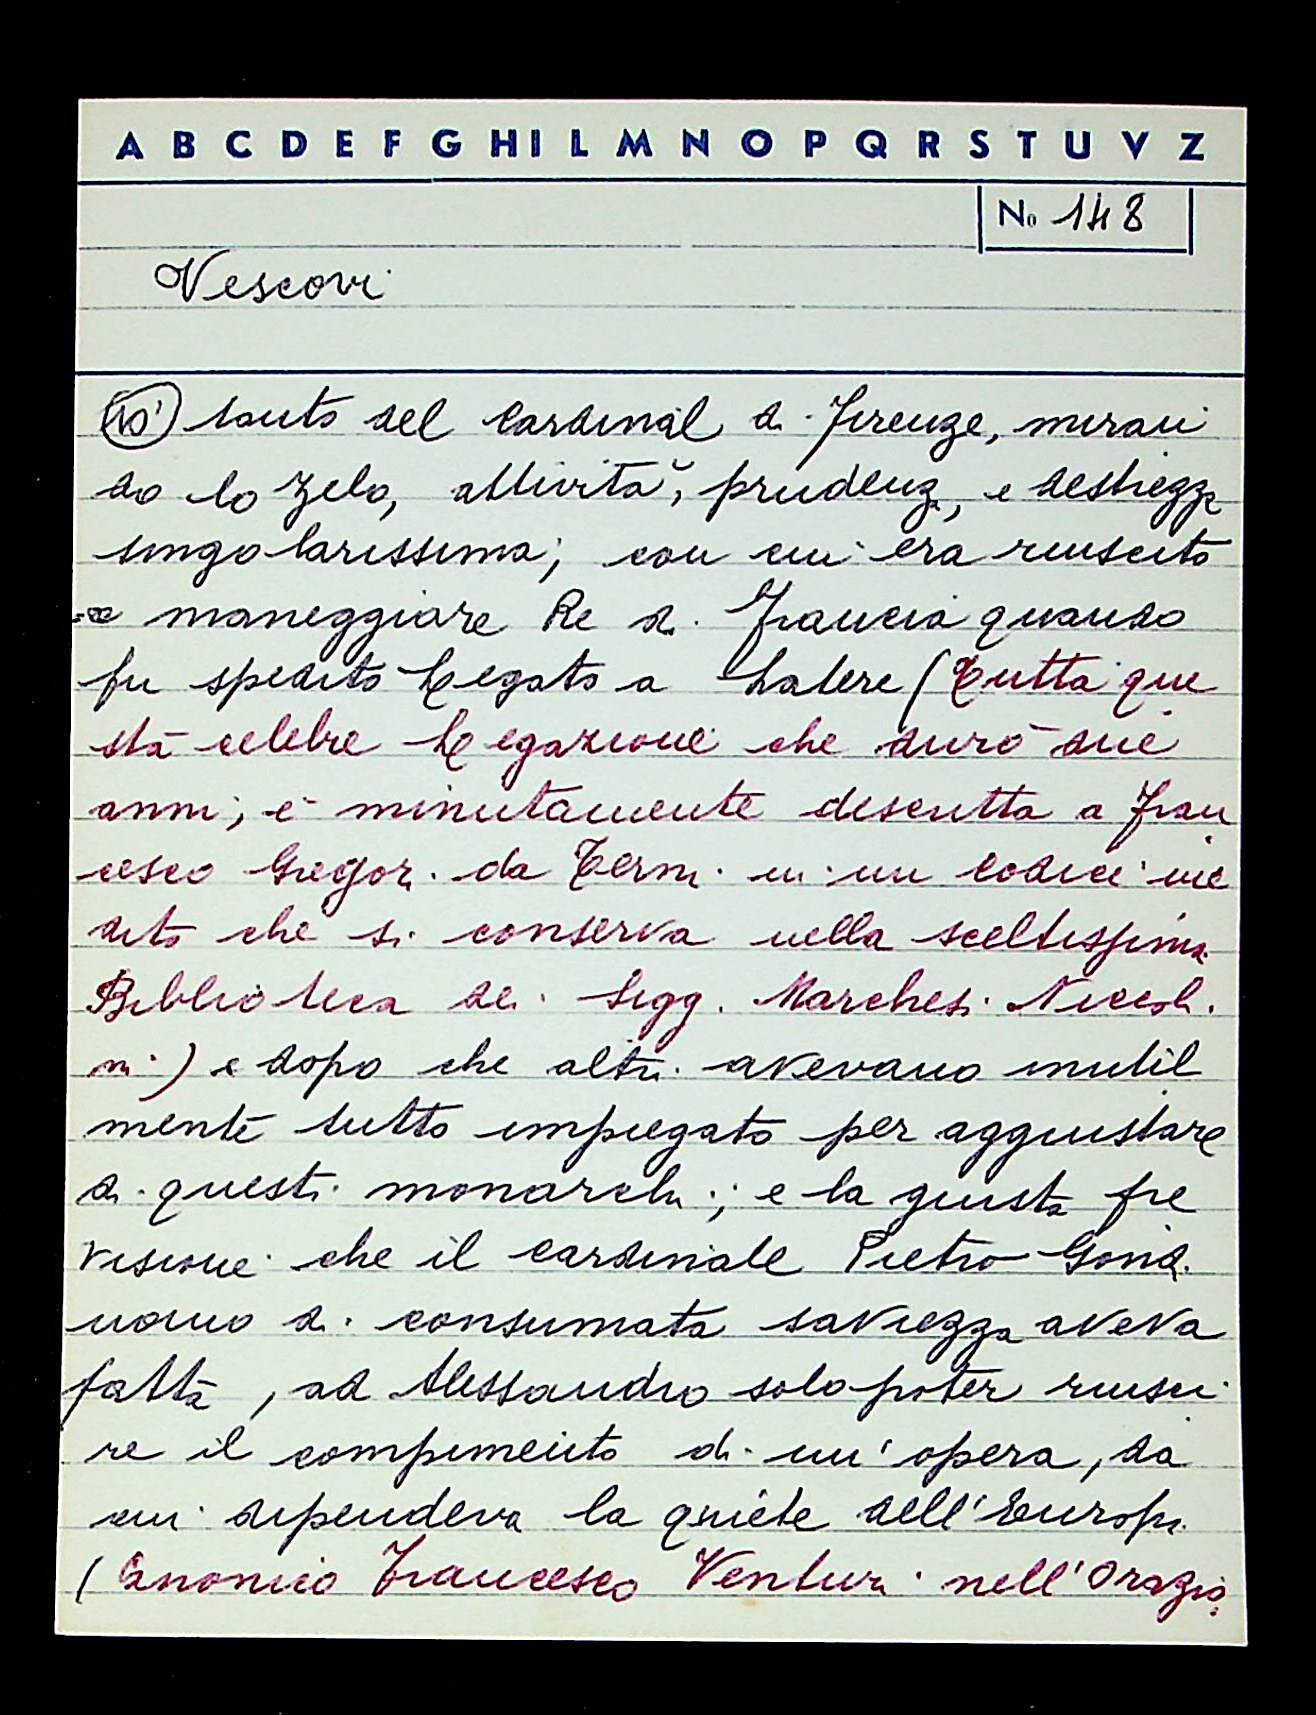 A B C D E F G H I L M N O P Q R S T U V Z
No 148
Vescovi
10) tanto del Cardinal di Firenze, miran
do lo zelo, attività, prudenz, e destrezza
singolarissima; con cui era riuscito
a maneggiare Re di Francia quando
fu spedito Legato a Latere (Tutta que
sta celebre Legazione che durò due
anni, è minutamente descritta a Fran
cesco Gregori da Terni in un codice ine
dito che si conserva nella sceltissima
Biblioteca dei Sigg. Marchesi Niccoli
ni) e dopo che altri avevano inutil
mente tutto impiegato per aggiustare
di questi monarchi; e la giusta pre
visione che il cardinale Pietro Gondi
uomo di consumata saviezza aveva
fatta, ad Alessandro solo poter riusci
re il compimento di un'opera, da
cui dipendeva la quiete dell'Europa
(Canonico Francesco Venturi nell'Orazio